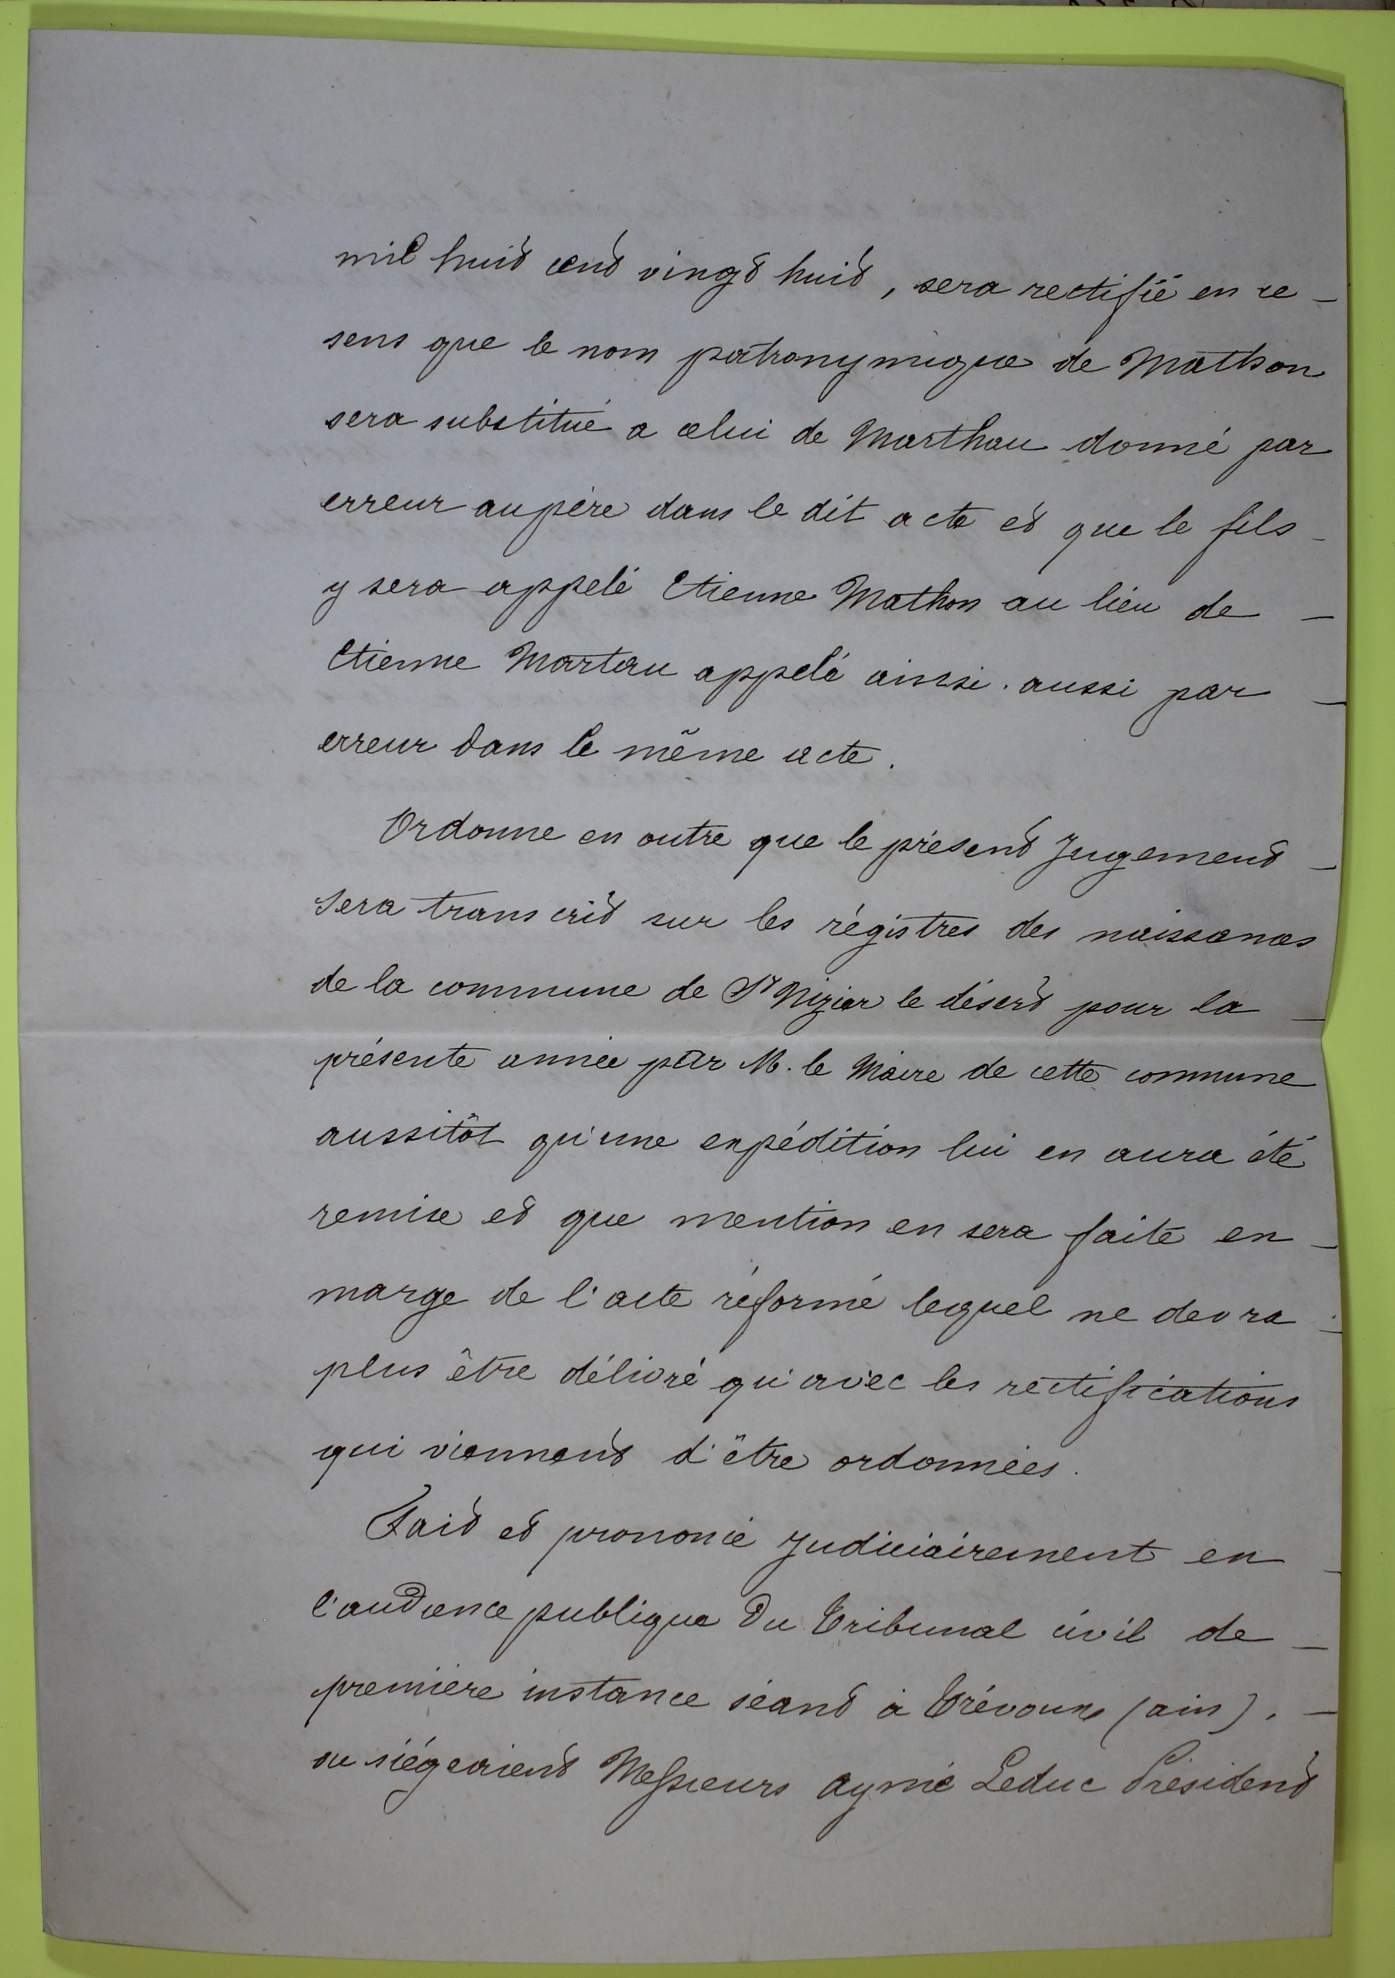 mil huit cent vingt huit, sera rectifié en ce –
sens que le nom patronymique de Mathon
sera substitué a celui de Marthau donné par
erreur au père dans le dit acte et que le fils –
y sera appelé Etienne Mathon au lieu de –
Etienne Martau appelé ainsi. aussi par –
erreur dans le même acte.
Ordonne en outre que le présent Jugement –
sera transcrit sur les régistres des naissances
de la commune de St Nizier le désert pour la –
présente année par M. le Maire de cette commune
aussitôt qu'une expédition lui en aura été
remise et que mention en sera faite en –
marge de l'acte réformé lequel ne devra –
plus être délivré qu'avec les rectifications
qui viennent d'être ordonnées.
Fait et prononcé Judiciairement en –
l'audience publique Du Tribunal civil de –
première instance séant à Trévoux (ain). –
ou siégeaient Messieurs Aymé Leduc Président